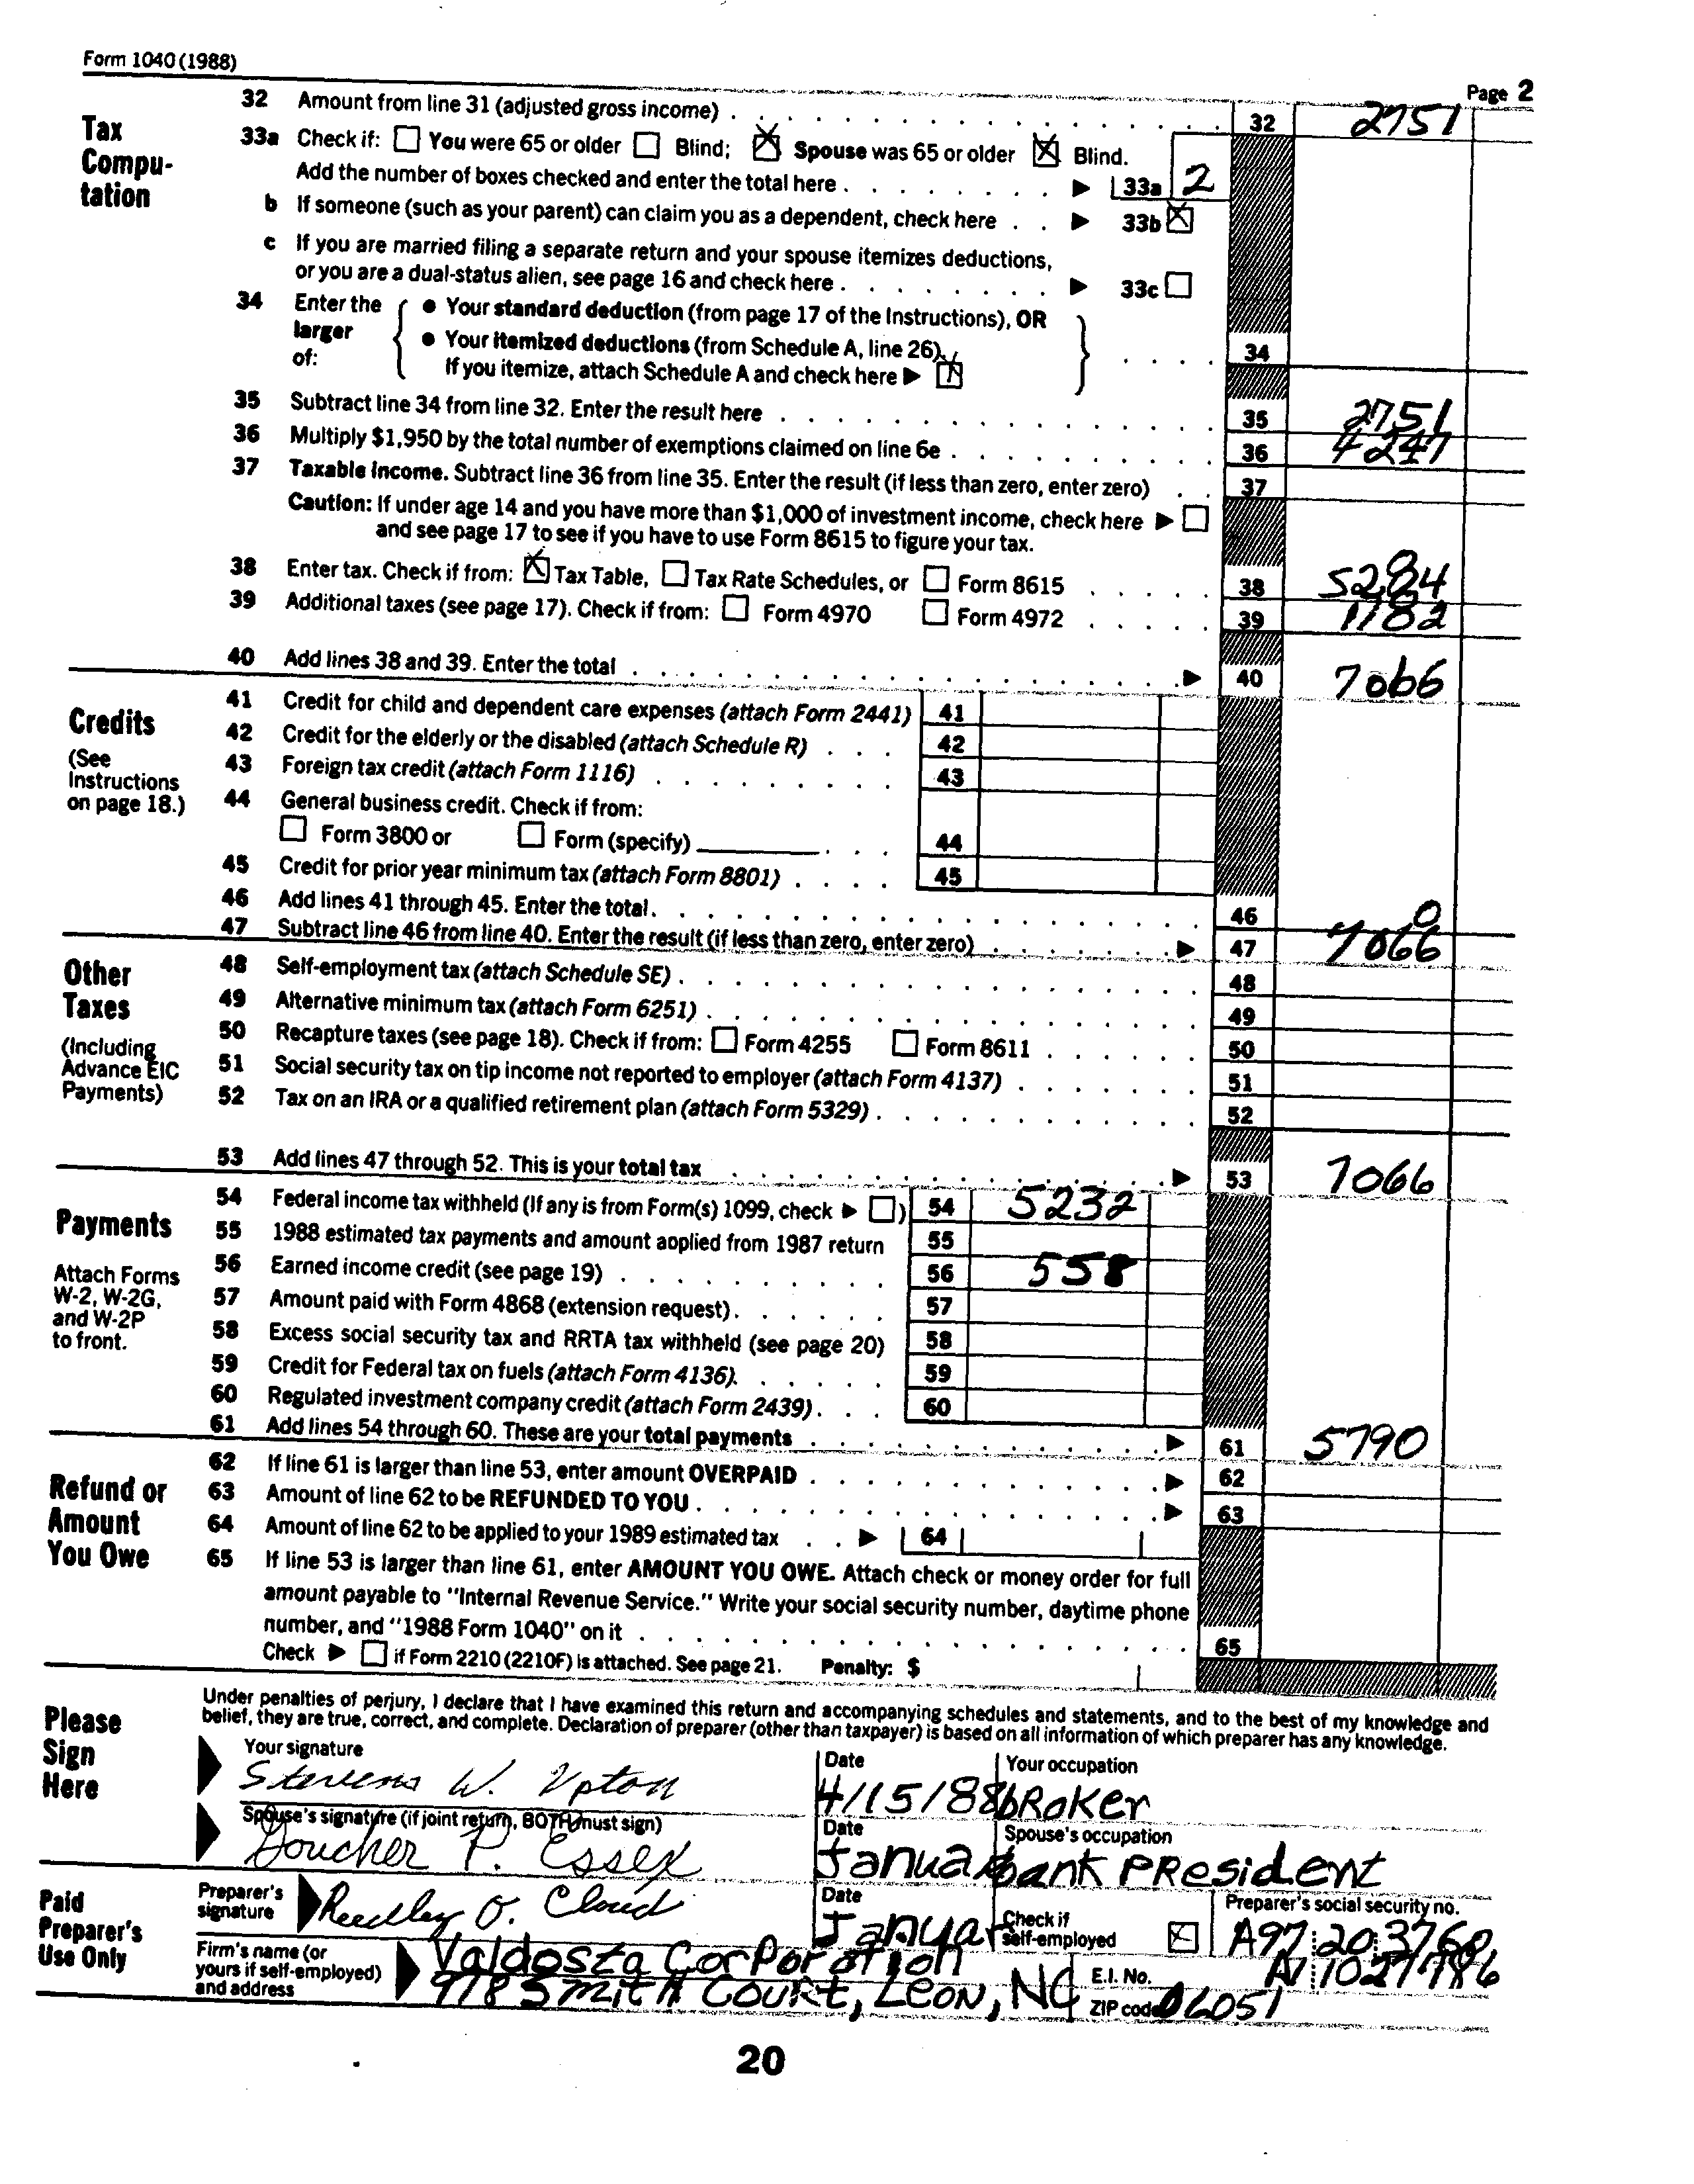 Form 1040 (1988)
Page 2
Tax Compu-tation
32 Amount from line 31 (adjusted gross income) . 32 2751
33a Check if: You were 65 or older Blind; X Spouse was 65 or older X Blind.
Add the number of boxes checked and enter the total here . ▶ 33a 2
b If someone (such as your parent) can claim you as a dependent, check here . . ▶ 33b X
c If you are married filing a separate return and your spouse itemizes deductions,
or you are a dual-status alien, see page 16 and check here . ▶ 33c
34 Enter the larger of:
● Your standard deduction (from page 17 of the Instructions), OR
● Your itemized deductions (from Schedule A, line 26).
If you itemize, attach Schedule A and check here ▶ X
34
35 Subtract line 34 from line 32. Enter the result here . 35 2751
36 Multiply $1,950 by the total number of exemptions claimed on line 6e . 36 4247
37 Taxable income. Subtract line 36 from line 35. Enter the result (if less than zero, enter zero) . . 37
Caution: If under age 14 and you have more than $1,000 of investment income, check here ▶
and see page 17 to see if you have to use Form 8615 to figure your tax.
38 Enter tax. Check if from: X Tax Table, Tax Rate Schedules, or Form 8615 . 38 5284
39 Additional taxes (see page 17). Check if from: Form 4970 Form 4972 . 39 1782
40 Add lines 38 and 39. Enter the total . ▶ 40 7066
Credits
(See Instructions on page 18.)
41 Credit for child and dependent care expenses (attach Form 2441) 41
42 Credit for the elderly or the disabled (attach Schedule R) . . . 42
43 Foreign tax credit (attach Form 1116) . 43
44 General business credit. Check if from:
Form 3800 or Form (specify) . . . 44
45 Credit for prior year minimum tax (attach Form 8801) . . . . 45
46 Add lines 41 through 45. Enter the total . 46 0
47 Subtract line 46 from line 40. Enter the result (if less than zero, enter zero) . ▶ 47 7066
Other Taxes
(Including Advance EIC Payments)
48 Self-employment tax (attach Schedule SE) . 48
49 Alternative minimum tax (attach Form 6251) . 49
50 Recapture taxes (see page 18). Check if from: Form 4255 Form 8611 . 50
51 Social security tax on tip income not reported to employer (attach Form 4137) . 51
52 Tax on an IRA or a qualified retirement plan (attach Form 5329) . 52
53 Add lines 47 through 52. This is your total tax . ▶ 53 7066
Payments
Attach Forms W-2, W-2G, and W-2P to front.
54 Federal income tax withheld (If any is from Form(s) 1099, check ▶ ) 54 5232
55 1988 estimated tax payments and amount applied from 1987 return 55
56 Earned income credit (see page 19) . 56 558
57 Amount paid with Form 4868 (extension request) . 57
58 Excess social security tax and RRTA tax withheld (see page 20) 58
59 Credit for Federal tax on fuels (attach Form 4136). 59
60 Regulated investment company credit (attach Form 2439) . . . 60
61 Add lines 54 through 60. These are your total payments . ▶ 61 5790
Refund or Amount You Owe
62 If line 61 is larger than line 53, enter amount OVERPAID . ▶ 62
63 Amount of line 62 to be REFUNDED TO YOU . ▶ 63
64 Amount of line 62 to be applied to your 1989 estimated tax . . ▶ 64
65 If line 53 is larger than line 61, enter AMOUNT YOU OWE. Attach check or money order for full
amount payable to "Internal Revenue Service." Write your social security number, daytime phone
number, and "1988 Form 1040" on it . 65
Check ▶ if Form 2210 (2210F) is attached. See page 21. Penalty: $
Please Sign Here
Under penalties of perjury, I declare that I have examined this return and accompanying schedules and statements, and to the best of my knowledge and
belief, they are true, correct, and complete. Declaration of preparer (other than taxpayer) is based on all information of which preparer has any knowledge.
Your signature Date Your occupation
Stevens W. Upton 4/15/88 bRoker
Spouse's signature (if joint return, BOTH must sign) Date Spouse's occupation
Goucher P. Essex Januar bank PResident
Paid Preparer's Use Only
Preparer's signature Date Check if self-employed Preparer's social security no.
Reedley O. Cloud Januar X A97 20 3760
Firm's name (or yours if self-employed) and address
Valdosta Corporation E.I. No. AI 1027786
9785 Smith Court, Leon, NC ZIP code 06051
20